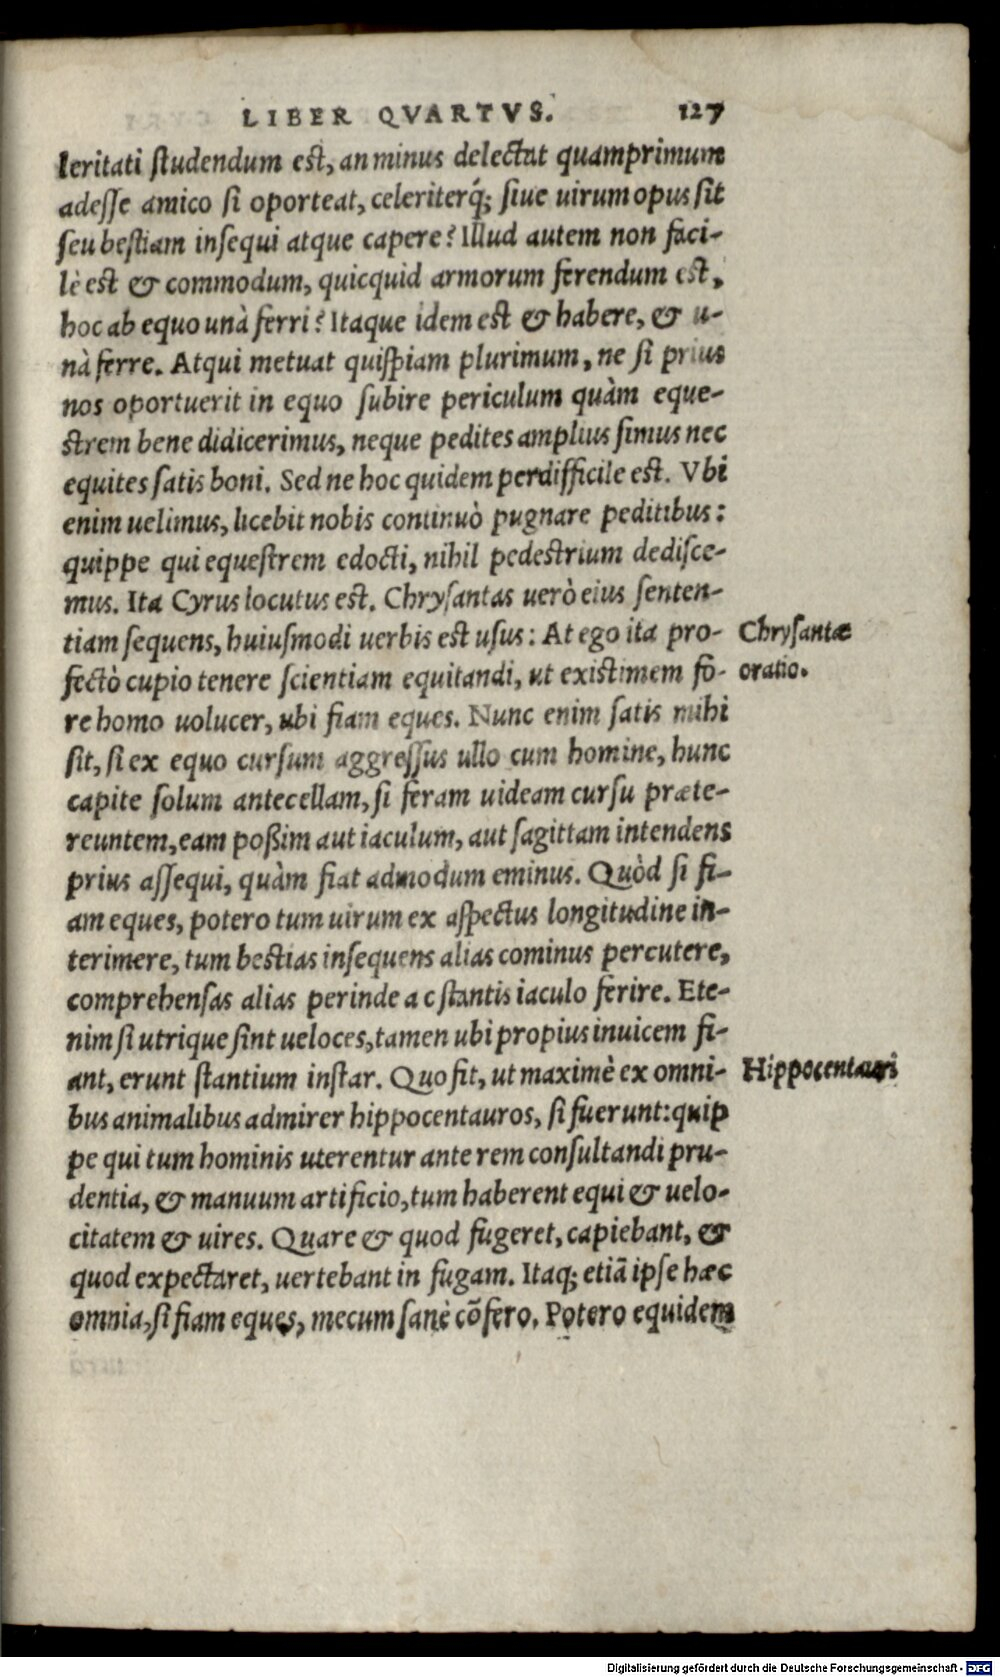 LIBER QVARTVS. 127
leritati ſtudendum eſt, an minus delectat quamprimum
adeſſe amico ſi oporteat, celeriterq́; ſiue uirum opus ſit
ſeu beſtiam inſequi atque capere? Illud autem non faci-
lè eſt & commodum, quicquid armorum ferendum eſt,
hoc ab equo unà ferri? Itaque idem eſt & habere, & u-
nà ferre. Atqui metuat quiſpiam plurimum, ne ſi prius
nos oportuerit in equo ſubire periculum quàm eque-
ſtrem bene didicerimus, neque pedites amplius ſimus nec
equites ſatis boni. Sed ne hoc quidem perdifficile eſt. Vbi
enim uelimus, licebit nobis continuò pugnare peditibus:
quippe qui equeſtrem edocti, nihil pedeſtrium dediſce-
mus. Ita Cyrus locutus eſt. Chryſantas uerò eius ſenten-
tiam ſequens, huiuſmodi uerbis eſt uſus: At ego ita pro-
fectò cupio tenere ſcientiam equitandi, ut exiſtimem fo-
re homo uolucer, ubi fiam eques. Nunc enim ſatis mihi
ſit, ſi ex equo curſum aggreſſus ullo cum homine, hunc
capite ſolum antecellam, ſi feram uideam curſu præte-
reuntem, eam poßim aut iaculum, aut ſagittam intendens
prius aſſequi, quàm fiat admodum eminus. Quòd ſi fi-
am eques, potero tum uirum ex aſpectus longitudine in-
terimere, tum beſtias inſequens alias cominus percutere,
comprehenſas alias perinde ac ſtantis iaculo ferire. Ete-
nim ſi utrique ſint ueloces, tamen ubi propius inuicem fi-
ant, erunt ſtantium inſtar. Quo fit, ut maximè ex omni-
bus animalibus admirer hippocentauros, ſi fuerunt: quip
pe qui tum hominis uterentur ante rem conſultandi pru-
dentia, & manuum artificio, tum haberent equi & uelo-
citatem & uires. Quare & quod fugeret, capiebant, &
quod expectaret, uertebant in fugam. Itaq; etiã ipſe hæc
omnia, ſi fiam eques, mecum ſanè cõfero. Potero equidem
Chryſantæ
oratio.
Hippocentauri
Digitalisierung gefördert durch die Deutsche Forschungsgemeinschaft - DFG